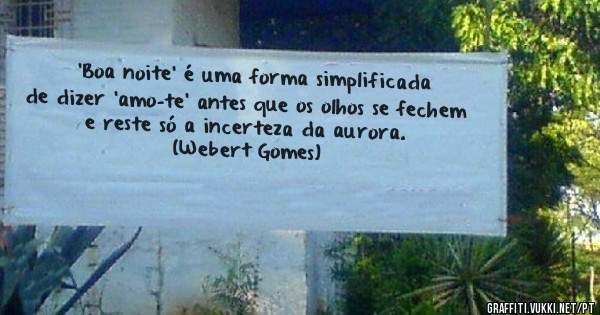 'Boa noite' é uma forma simplificada
de dizer 'amo-te' antes que os olhos se fechem
e reste só a incerteza da aurora.
(Webert Gomes)
GRAFFITI.VUKKI.NET/PT